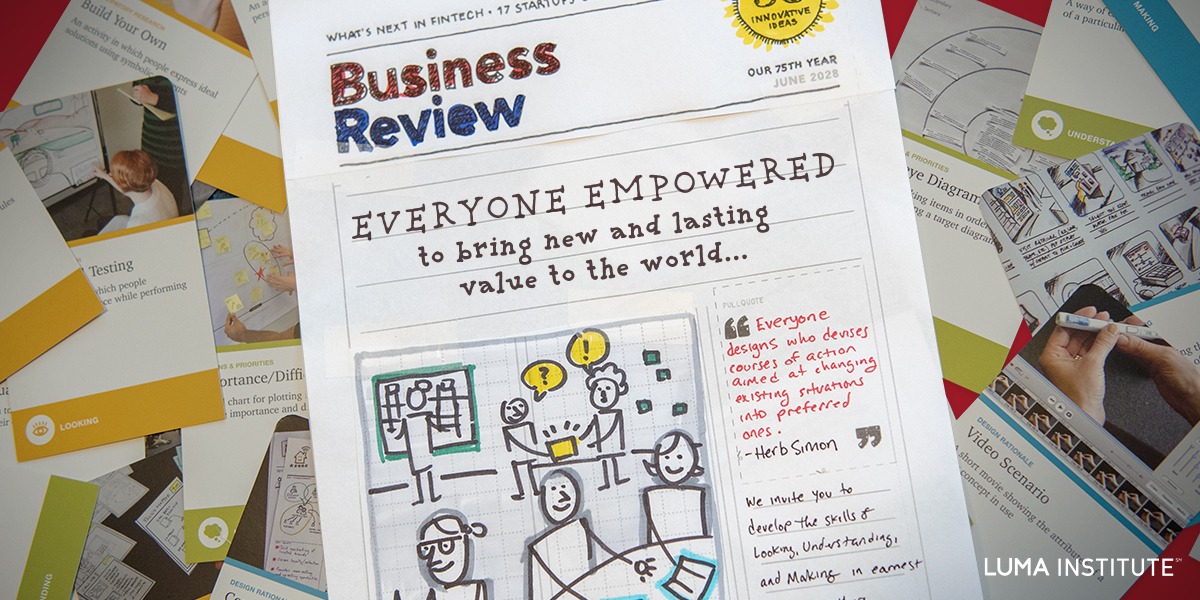 WHAT'S NEXT IN FINTECH • 17 STARTUPS
INNOVATIVE
IDEAS
Business
Review
OUR 75TH YEAR
JUNE 2028
EVERYONE EMPOWERED
to bring new and lasting
value to the world...
PULLQUOTE
“ Everyone
designs who devises
courses of action
aimed at changing
existing situations
into preferred
ones. ”
-Herb Simon
We invite you to
develop the skills of
Looking, Understanding,
and Making in earnest
?
!
Build Your Own
An activity in which people express ideal
solutions using symbolic
Testing
which people
while performing
LOOKING
& PRIORITIES
chart for plotting
importance and
DESIGN
MAKING
A way of
of a particular
UNDERST
& PRIORITIES
Diagram
items in order
a target diagram
DESIGN RATIONALE
Video Scenario
short movie showing the
concept in use
LUMA INSTITUTE℠